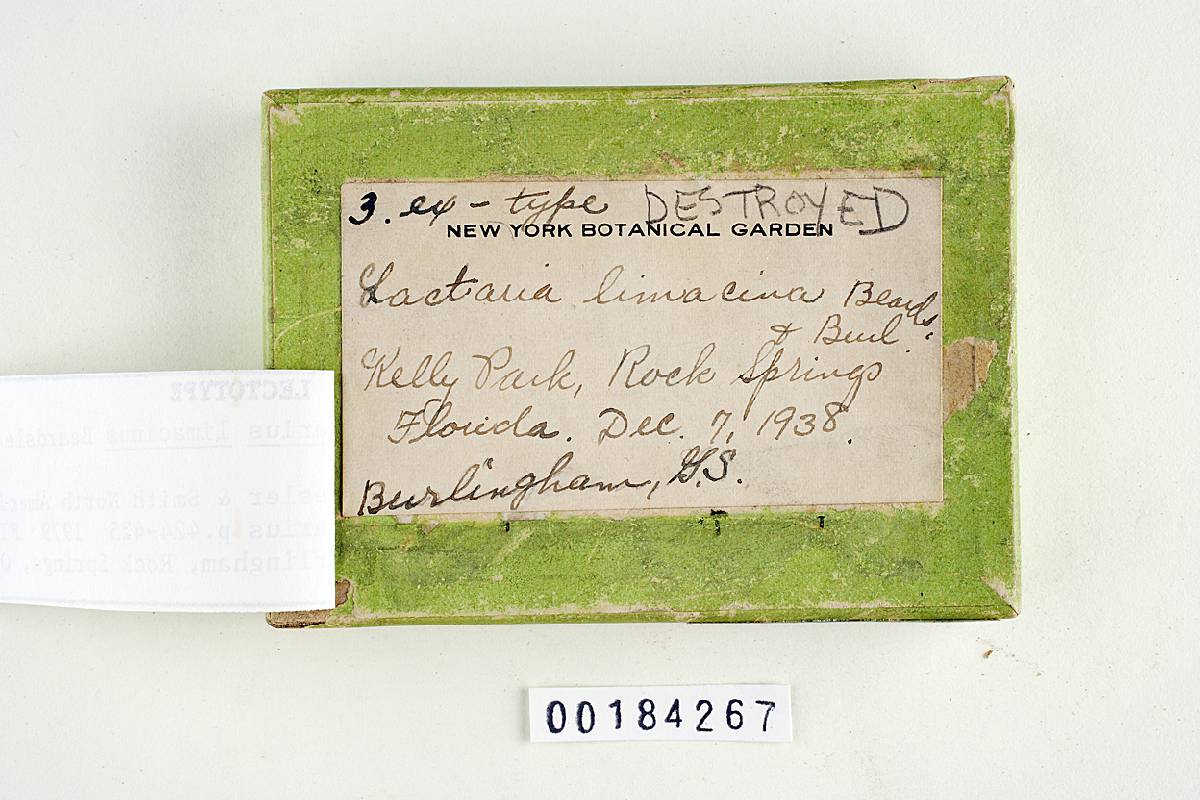 3. ex - type DESTROYED
NEW YORK BOTANICAL GARDEN
Lactaria limacina Beards.
& Burl.
Kelly Park, Rock Springs
Florida. Dec. 7, 1938.
Burlingham, G.S.
LECTOTYPE
rius limacinus Beardsle
sler & Smith North Amer
arius p.424-425 1979
rlingham, Rock Springs,
00184267